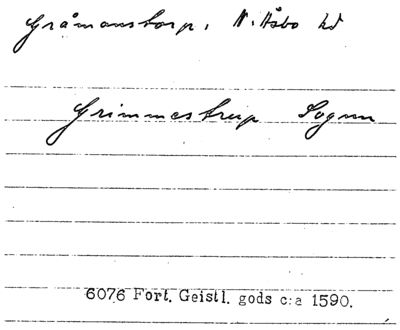 Gråmanstorp. N. Åsbo hd
Grimmestrup Sognn
6076 Fort. Geistl. gods c:a 1590.